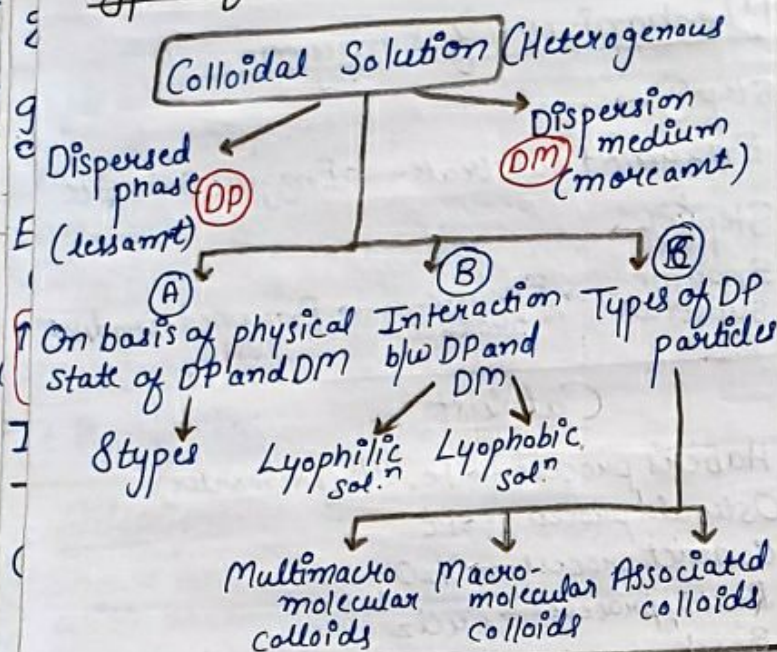 Colloidal Solution (Heterogenous
Dispersed
phase DP
(less amt)
Dispersion
medium
DM (more amt)
A
On basis of physical
state of DP and DM
8 types
B
Interaction
b/w DP and
DM
Lyophilic
sol.n
Lyophobic
sol.n
C
Types of DP
particles
Multimacro
molecular
colloids
Macro-
molecular
colloids
Associated
colloids